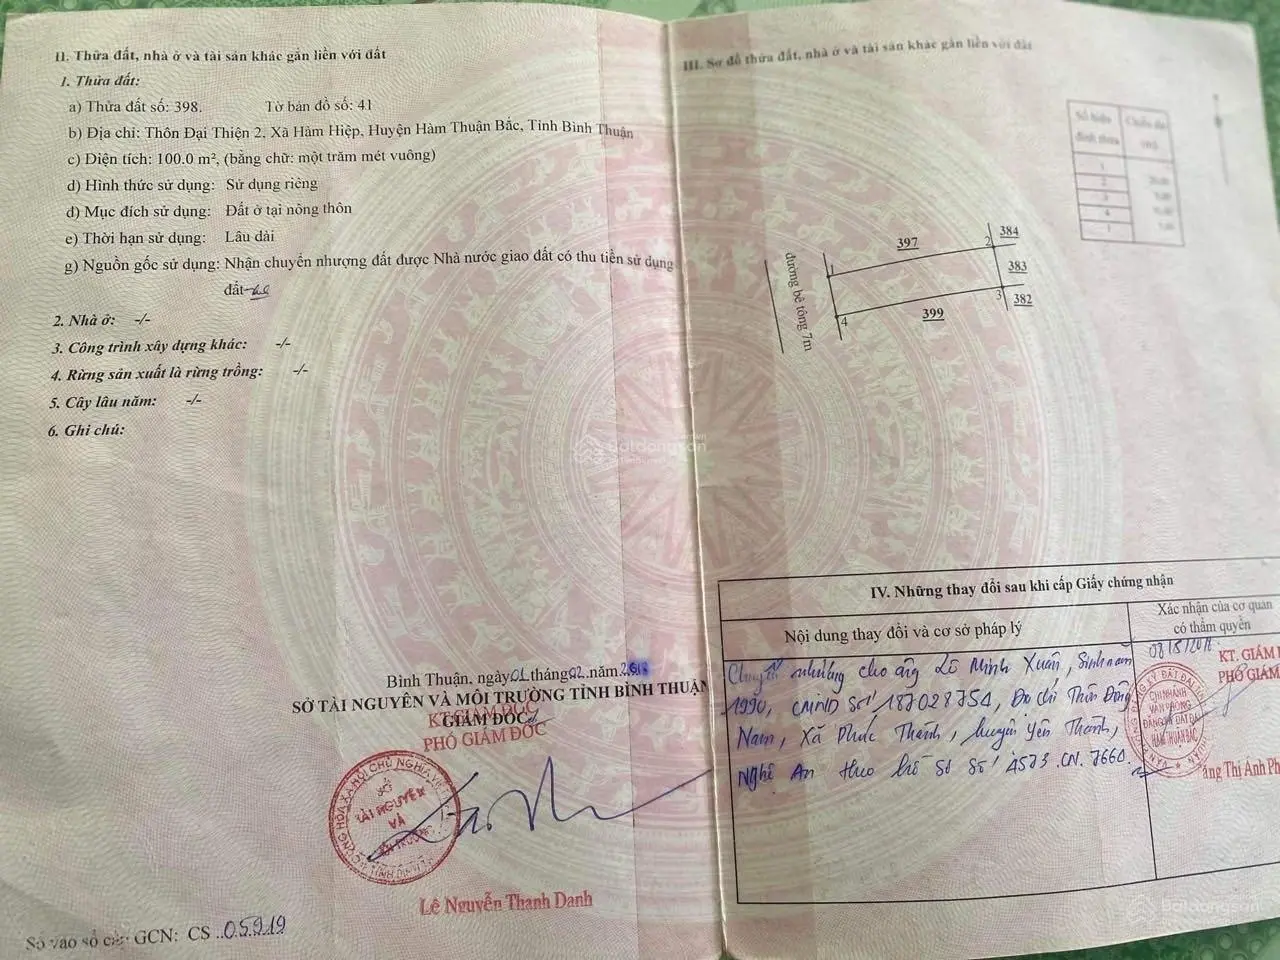 II. Thửa đất, nhà ở và tài sản khác gắn liền với đất
1. Thửa đất:
a) Thửa đất số: 398. Tờ bản đồ số: 41
b) Địa chỉ: Thôn Đại Thiện 2, Xã Hàm Hiệp, Huyện Hàm Thuận Bắc, Tỉnh Bình Thuận
c) Diện tích: 100.0 m², (bằng chữ: một trăm mét vuông)
d) Hình thức sử dụng: Sử dụng riêng
đ) Mục đích sử dụng: Đất ở tại nông thôn
e) Thời hạn sử dụng: Lâu dài
g) Nguồn gốc sử dụng: Nhận chuyển nhượng đất được Nhà nước giao đất có thu tiền sử dụng
đất
2. Nhà ở: -/-
3. Công trình xây dựng khác: -/-
4. Rừng sản xuất là rừng trồng: -/-
5. Cây lâu năm: -/-
6. Ghi chú:
Bình Thuận, ngày 01 tháng 02 năm
SỞ TÀI NGUYÊN VÀ MÔI TRƯỜNG TỈNH BÌNH THUẬN
KT. GIÁM ĐỐC
GIÁM ĐỐC
PHÓ GIÁM ĐỐC
CỘNG HÒA XÃ HỘI CHỦ NGHĨA
SỞ
TÀI NGUYÊN
VÀ
MÔI TRƯỜNG
Lê Nguyễn Thanh Danh
Số vào sổ cấp GCN: CS 05919
III. Sơ đồ thửa đất, nhà ở và tài sản khác gắn liền với đất
Số hiệu đỉnh thửa
Chiều dài
1
2
3
4
1
384
397
2
383
1
đường bê tông 7m
3
382
399
4
Batdongsan
IV. Những thay đổi sau khi cấp Giấy chứng nhận
Nội dung thay đổi và cơ sở pháp lý
Xác nhận của cơ quan
có thẩm quyền
Chuyển nhượng cho ông Lê Minh Xuân, Sinh năm
1990, CMND số 187028754, Địa chỉ Thôn Đông
Nam, Xã Phúc Thành, huyện Yên Thành,
Nghệ An theo hồ sơ số
KT. GIÁM
PHÓ GIÁM
CHI NHÁNH
VĂN PHÒNG
ĐĂNG KÝ ĐẤT ĐAI
HÀM THUẬN BẮC
Thị Ánh
Batdongsan